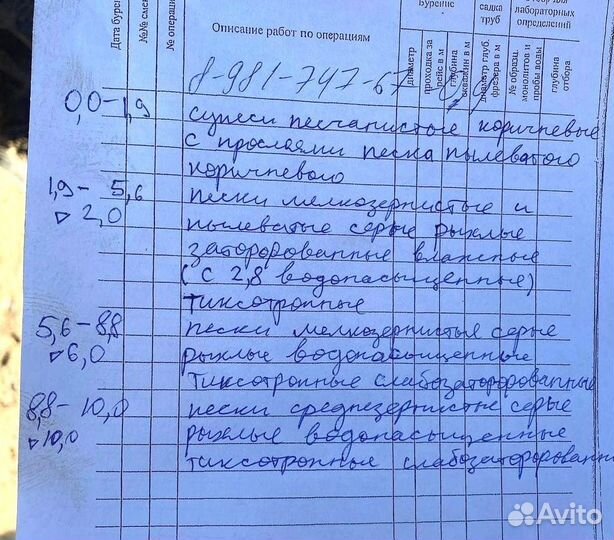 Дата бурен
№№ смен
№ операции
Описание работ по операциям
Бурение
диаметр
проходка за рейс в м
глубина скважин в м
садка труб
диаметр глуб. фрезера в м
лабораторных определений
№ образц. монолитов и пробы воды
глубина отбора
8-981-747-67
0,0-1,9 супеси песчанистые коричневые
с прослоями песка пылеватого
коричневого
1,9- 5,6 пески мелкозернистые и
▿ 2,0 пылеватые серые рыхлые
заторорованные влажные
(с 2,8 водонасыщенные)
тиксотропные
5,6-8,8 пески мелкозернистые серые
▿6,0 рыхлые водонасыщенные
тиксотропные слабозаторорованные
8,8-10,0 пески среднезернистые серые
▿10,0 рыхлые водонасыщенные
тиксотропные слабозаторорованн
Avito